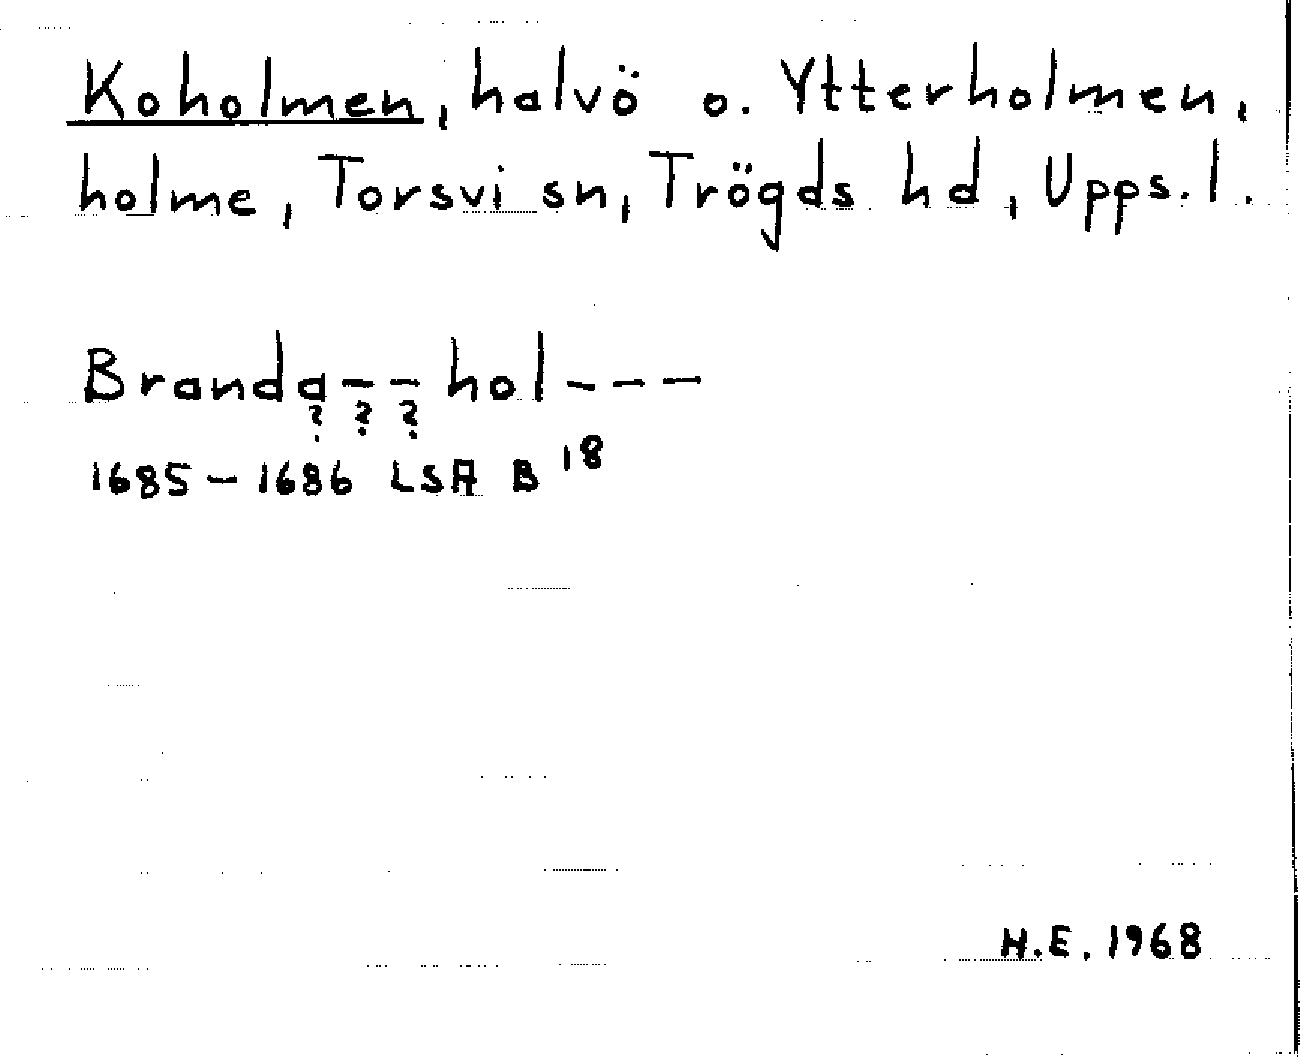 Koholmen, halvö o. Ytterholmen,
holme, Torsvi sn, Trögds hd, Upps. l.
Branda-- hol---
? ? ?
1685-1686 LSA B 18
H.E. 1968